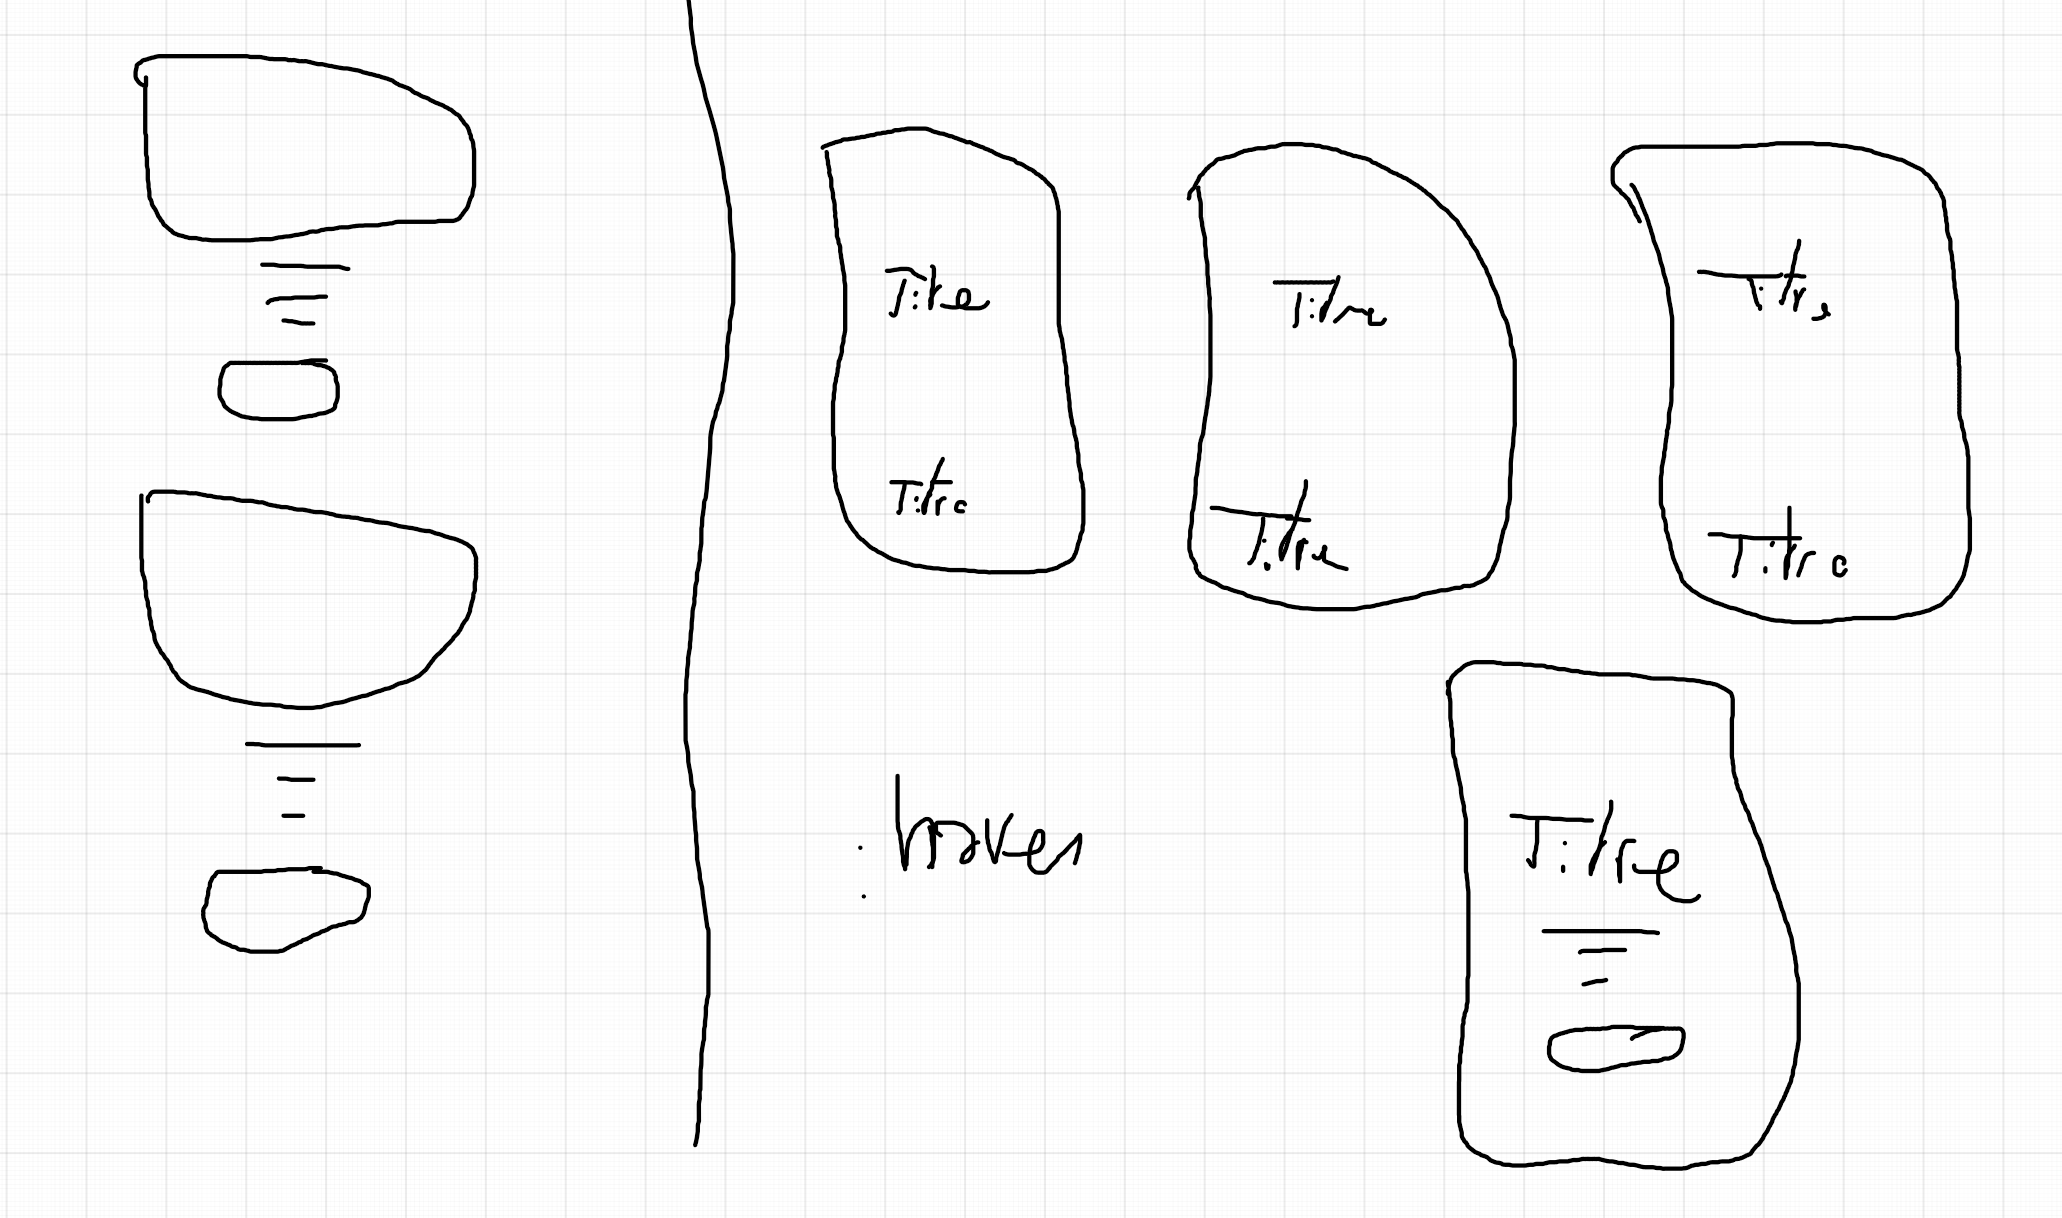 Titre
Titre
Titre
Titre
Titre
Titre
: hover
Titre